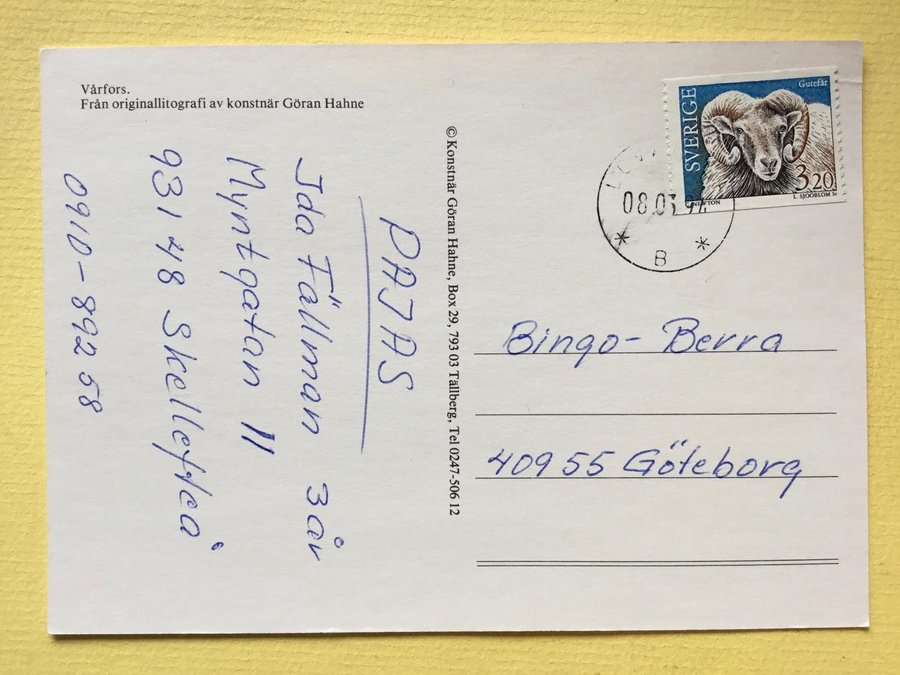 Vårfors.
Från originallitografi av konstnär Göran Hahne
© Konstnär Göran Hahne, Box 29, 793 03 Tällberg, Tel 0247-506 12
PAJAS
Ida Fällman 3 år
Myntgatan 11
931 48 Skellefteå
0910-892 58
SVERIGE
Gutefår
3.20
L SJÖÖBLOM Sc
B
Bingo-Berra
40955 Göteborg